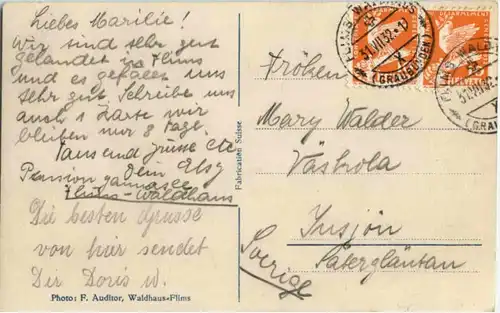 Liebes Marilie!
Wir sind sehr gut
gelandet in Flims
und es gefällt uns
sehr gut Schreibe uns
auch 1 Karte wir
bleiben nur 8 Tage.
Tausend Grüsse etc
Dein Elsy
Pension
Flims-Waldhaus
Die besten Grüsse
von hier sendet
Dir Doris W.
Photo: F. Auditor, Waldhaus-Flims
Fabrication Suisse
FLIMS-WALDHAUS
31.VII.32
(GRAUBÜNDEN)
FLIMS-WALD
31.VII.32
(GRAU
Fröken
Mary Walder
Västrola
Insjön
Säterglantan
Sverige